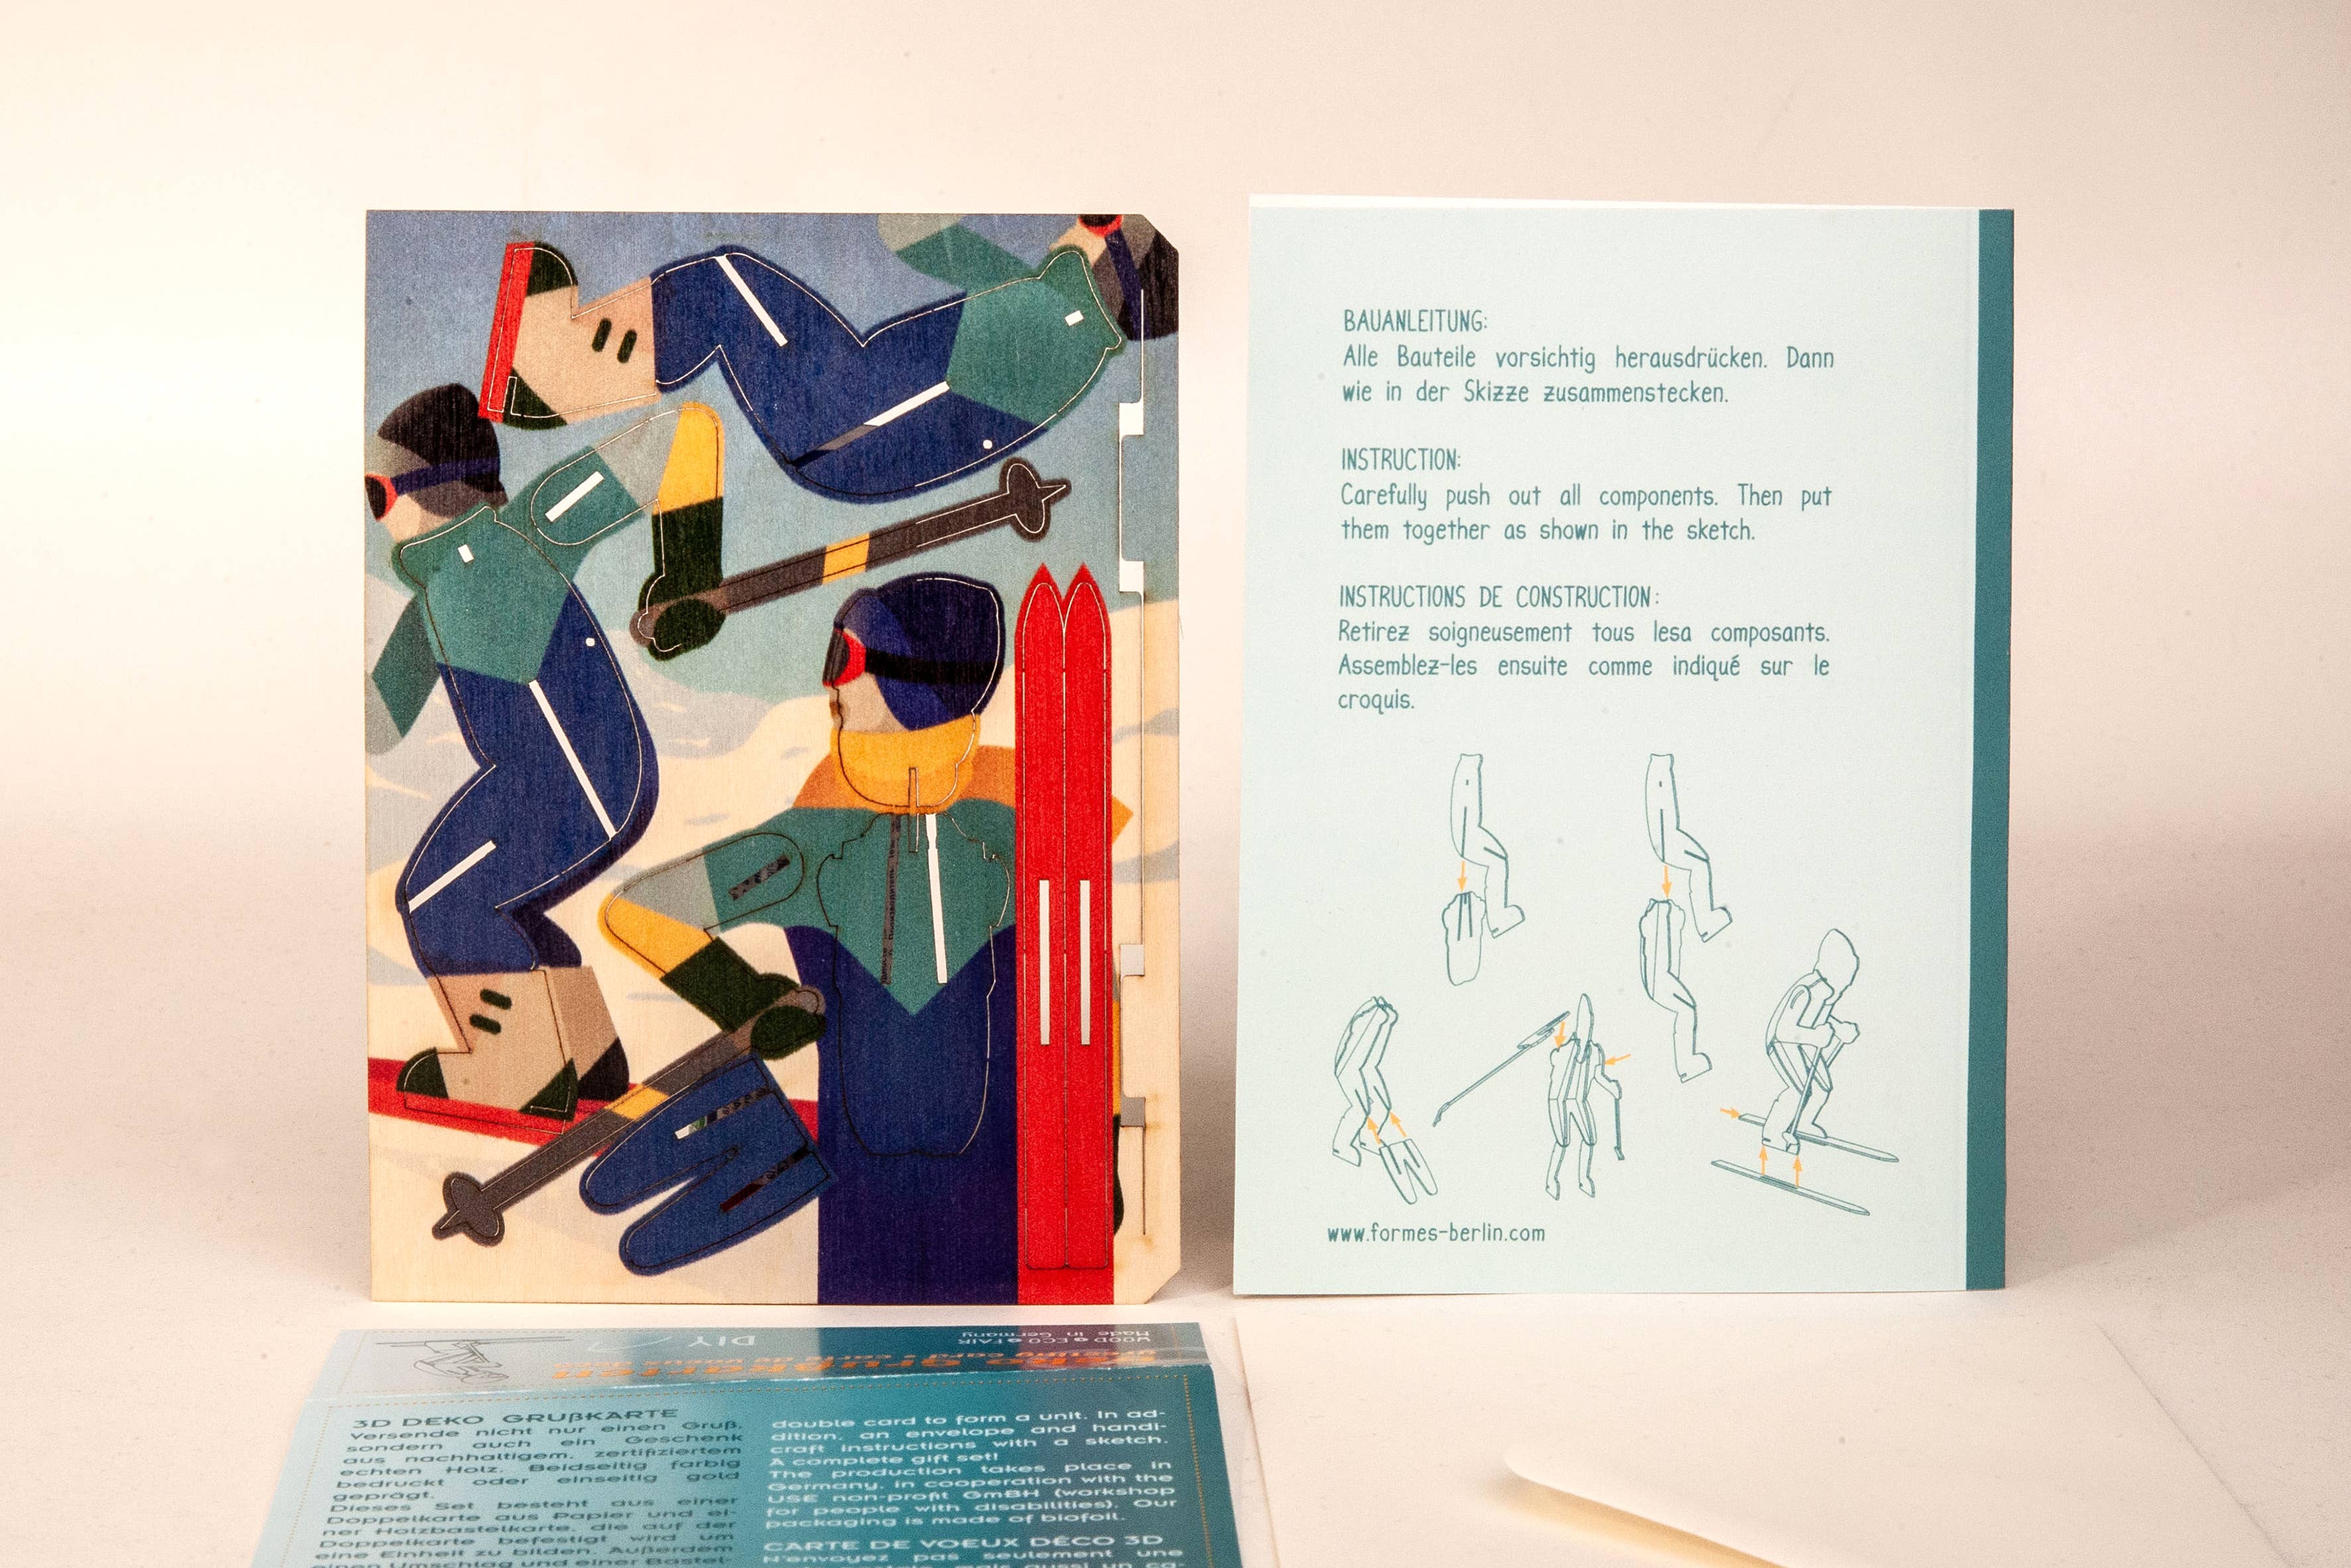 BAUANLEITUNG:
Alle Bauteile vorsichtig herausdrücken. Dann
wie in der Skizze zusammenstecken.
INSTRUCTION:
Carefully push out all components. Then put
them together as shown in the sketch.
INSTRUCTIONS DE CONSTRUCTION:
Retirez soigneusement tous lesa composants.
Assemblez-les ensuite comme indiqué sur le
croquis.
www.formes-berlin.com
DIY
WOOD ECO FAIR
Made in Germany
3D DEKO GRUßKARTE
Versende nicht nur einen Gruß,
sondern auch ein Geschenk
aus nachhaltigem, zertifiziertem
echten Holz. Beidseitig farbig
bedruckt oder einseitig gold
geprägt.
Dieses Set besteht aus einer
Doppelkarte aus Papier und ei-
ner Holzbastelkarte, die auf der
Doppelkarte befestigt wird um
eine Einheit zu bilden. Außerdem
einen Umschlag und einer Bastel-
double card to form a unit. In ad-
dition, an envelope and handi-
craft instructions with a sketch.
A complete gift set!
The production takes place in
Germany, in cooperation with the
USE non-profit GmBH (workshop
for people with disabilities). Our
packaging is made of biofoil.
CARTE DE VOEUX DÉCO 3D
N'envoyez pas seulement une